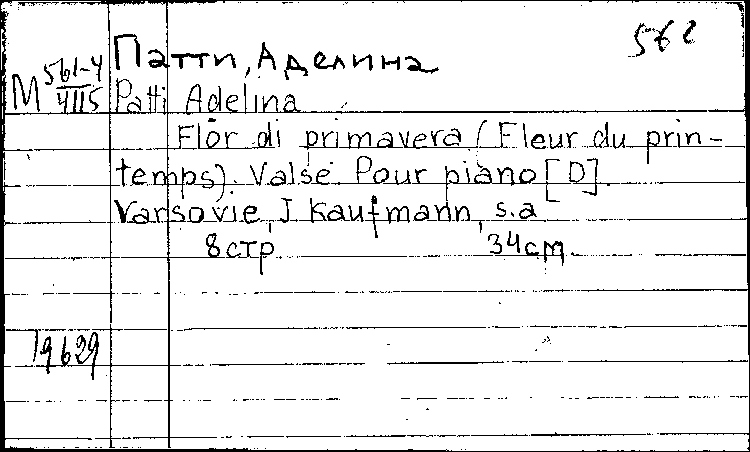 562
Патти, Аделина
M 561-4
4115
Patti Adelina
Flor di primavera (Fleur du prin-
temps). Valse. Pour piano [D].
Varsovie, J Kaufmann, s.a
8 стр. 34 см.
19629